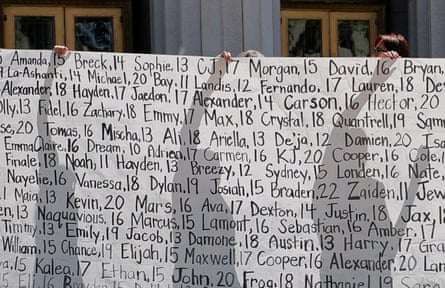 0 Amanda, 15 Breck, 14 Sophie, 13 CJ, 17 Morgan, 15 David, 16 Bryan
9 La-Ashanti, 14 Michael, 20 Bay, 11 Landis, 12 Fernando, 17 Lauren, 18 Dev
Alexander, 18 Hayden, 17 Jaedon, 17 Alexander, 14 Carson, 16 Hector, 20
olly, 13 Fidel, 16 Zachary, 18 Emmy, 17 Max, 18 Crystal, 18 Quantrell, 19 Sam
se, 20 Tomas, 16 Mischa, 13 Ali, 18 Ariella, 13 Deja, 12 Damien, 20 Isa
EmmaClaire, 16 Dream, 10 Adriea, 17 Carmen, 16 KJ, 20 Cooper, 16 Cole
Finale, 18 Noah, 11 Hayden, 13 Breezy, 12 Sydney, 15 Londen, 16 Nate,
Nayelie, 16 Vanessa, 18 Dylan, 19 Josiah, 15 Braden, 22 Zaiden, 11 Jev
1 Maia, 13 Kevin, 20 Mars, 16 Ava, 17 Dexton, 14 Justin, 18 Jax,
n, 18 Naquavious, 16 Marcus, 15 Lamont, 16 Sebastian, 16 Amber, 17
Timmy, 13 Emily, 19 Jacob, 13 Damone, 18 Austin, 13 Harry, 17 Gra
William, 15 Chance, 19 Elijah, 15 Maxwell, 17 Cooper, 16 Alexander, 20 Lan
ya, 15 Kalea, 17 Ethan, 15 John, 20 Frog, 18 Nathaniel, 19 Sara